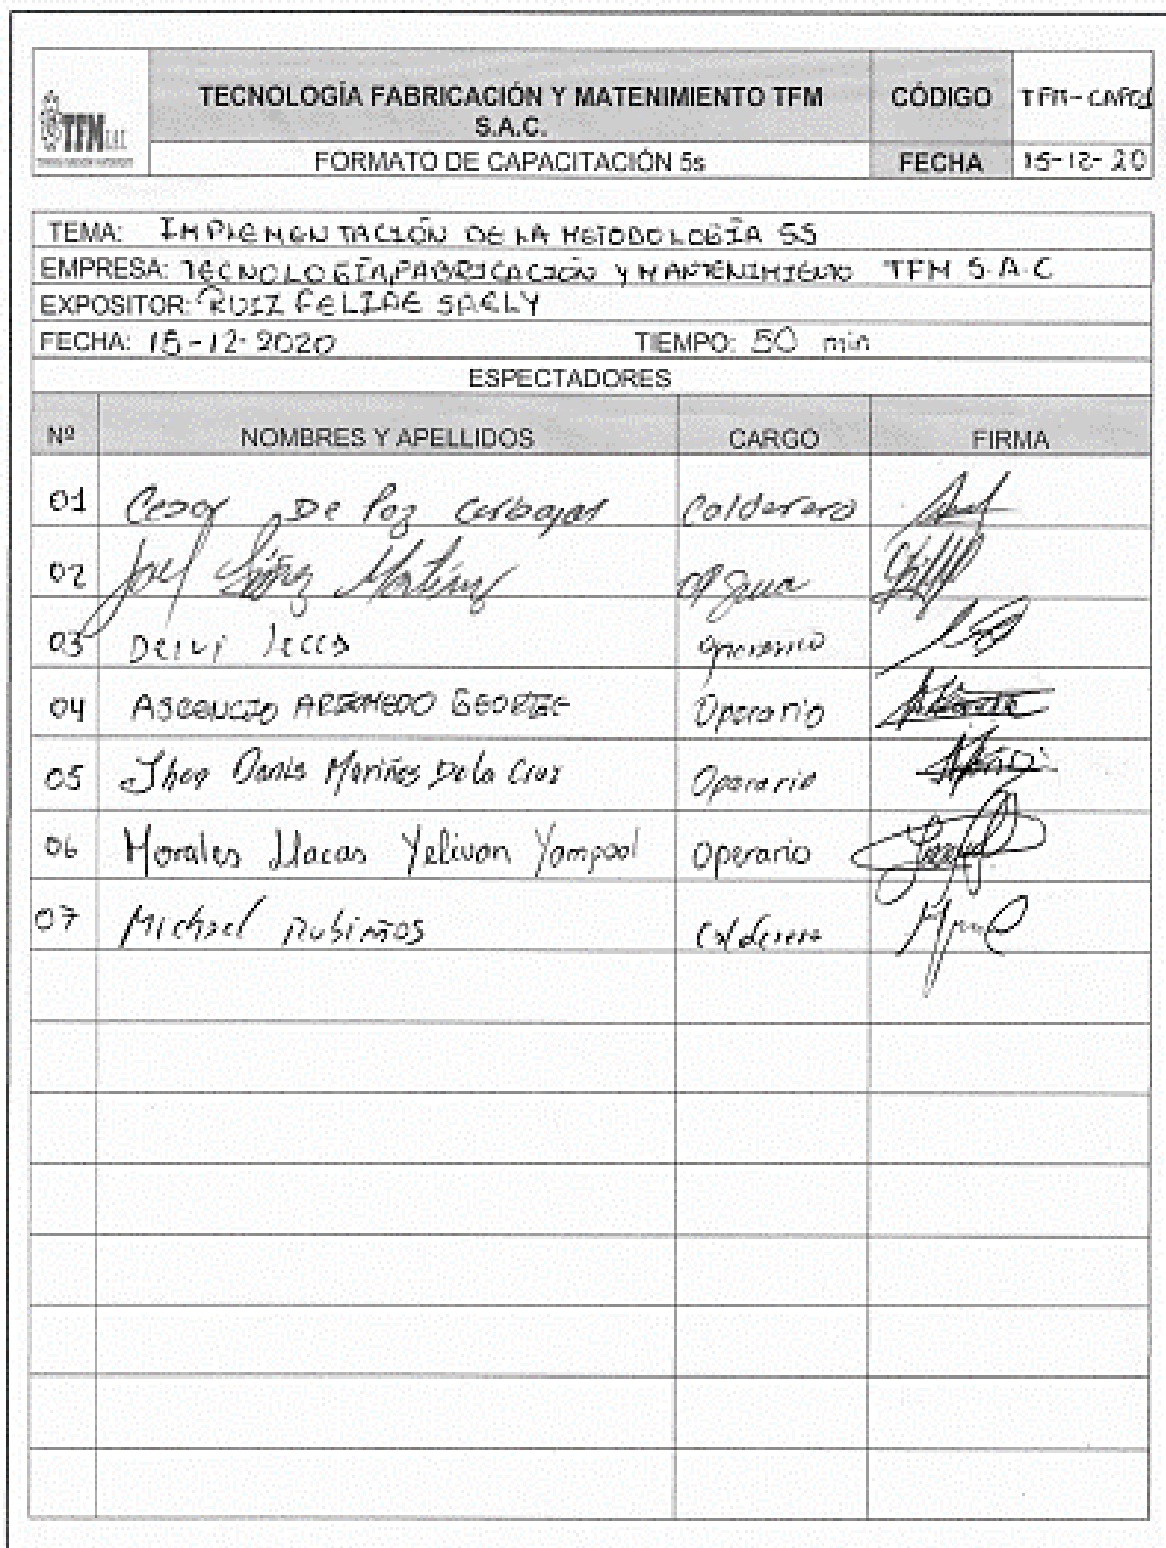 TFM S.A.C.
TECNOLOGÍA FABRICACIÓN Y MATENIMIENTO TFM S.A.C.
CÓDIGO
FORMATO DE CAPACITACIÓN 5s
FECHA 15-12-20
TEMA: IMPLEMENTACIÓN DE LA METODOLOGÍA 5S
EMPRESA: TECNOLOGÍA, FABRICACIÓN Y MANTENIMIENTO TFM S.A.C
EXPOSITOR: RUIZ FELIPE SAELY
FECHA: 15-12-2020 TIEMPO: 50 min
ESPECTADORES
Nº NOMBRES Y APELLIDOS CARGO FIRMA
01 Cesar De Paz Carbajal Calderero
02 Joel Martinez
03 Deivi lecca operario
04 ASCENCIO GEORGE Operario
05 Jhon Danis De la Cruz Operario
06 Morales Llacas Yelivan Yampool Operario
07 Michael Rubiños Calderero